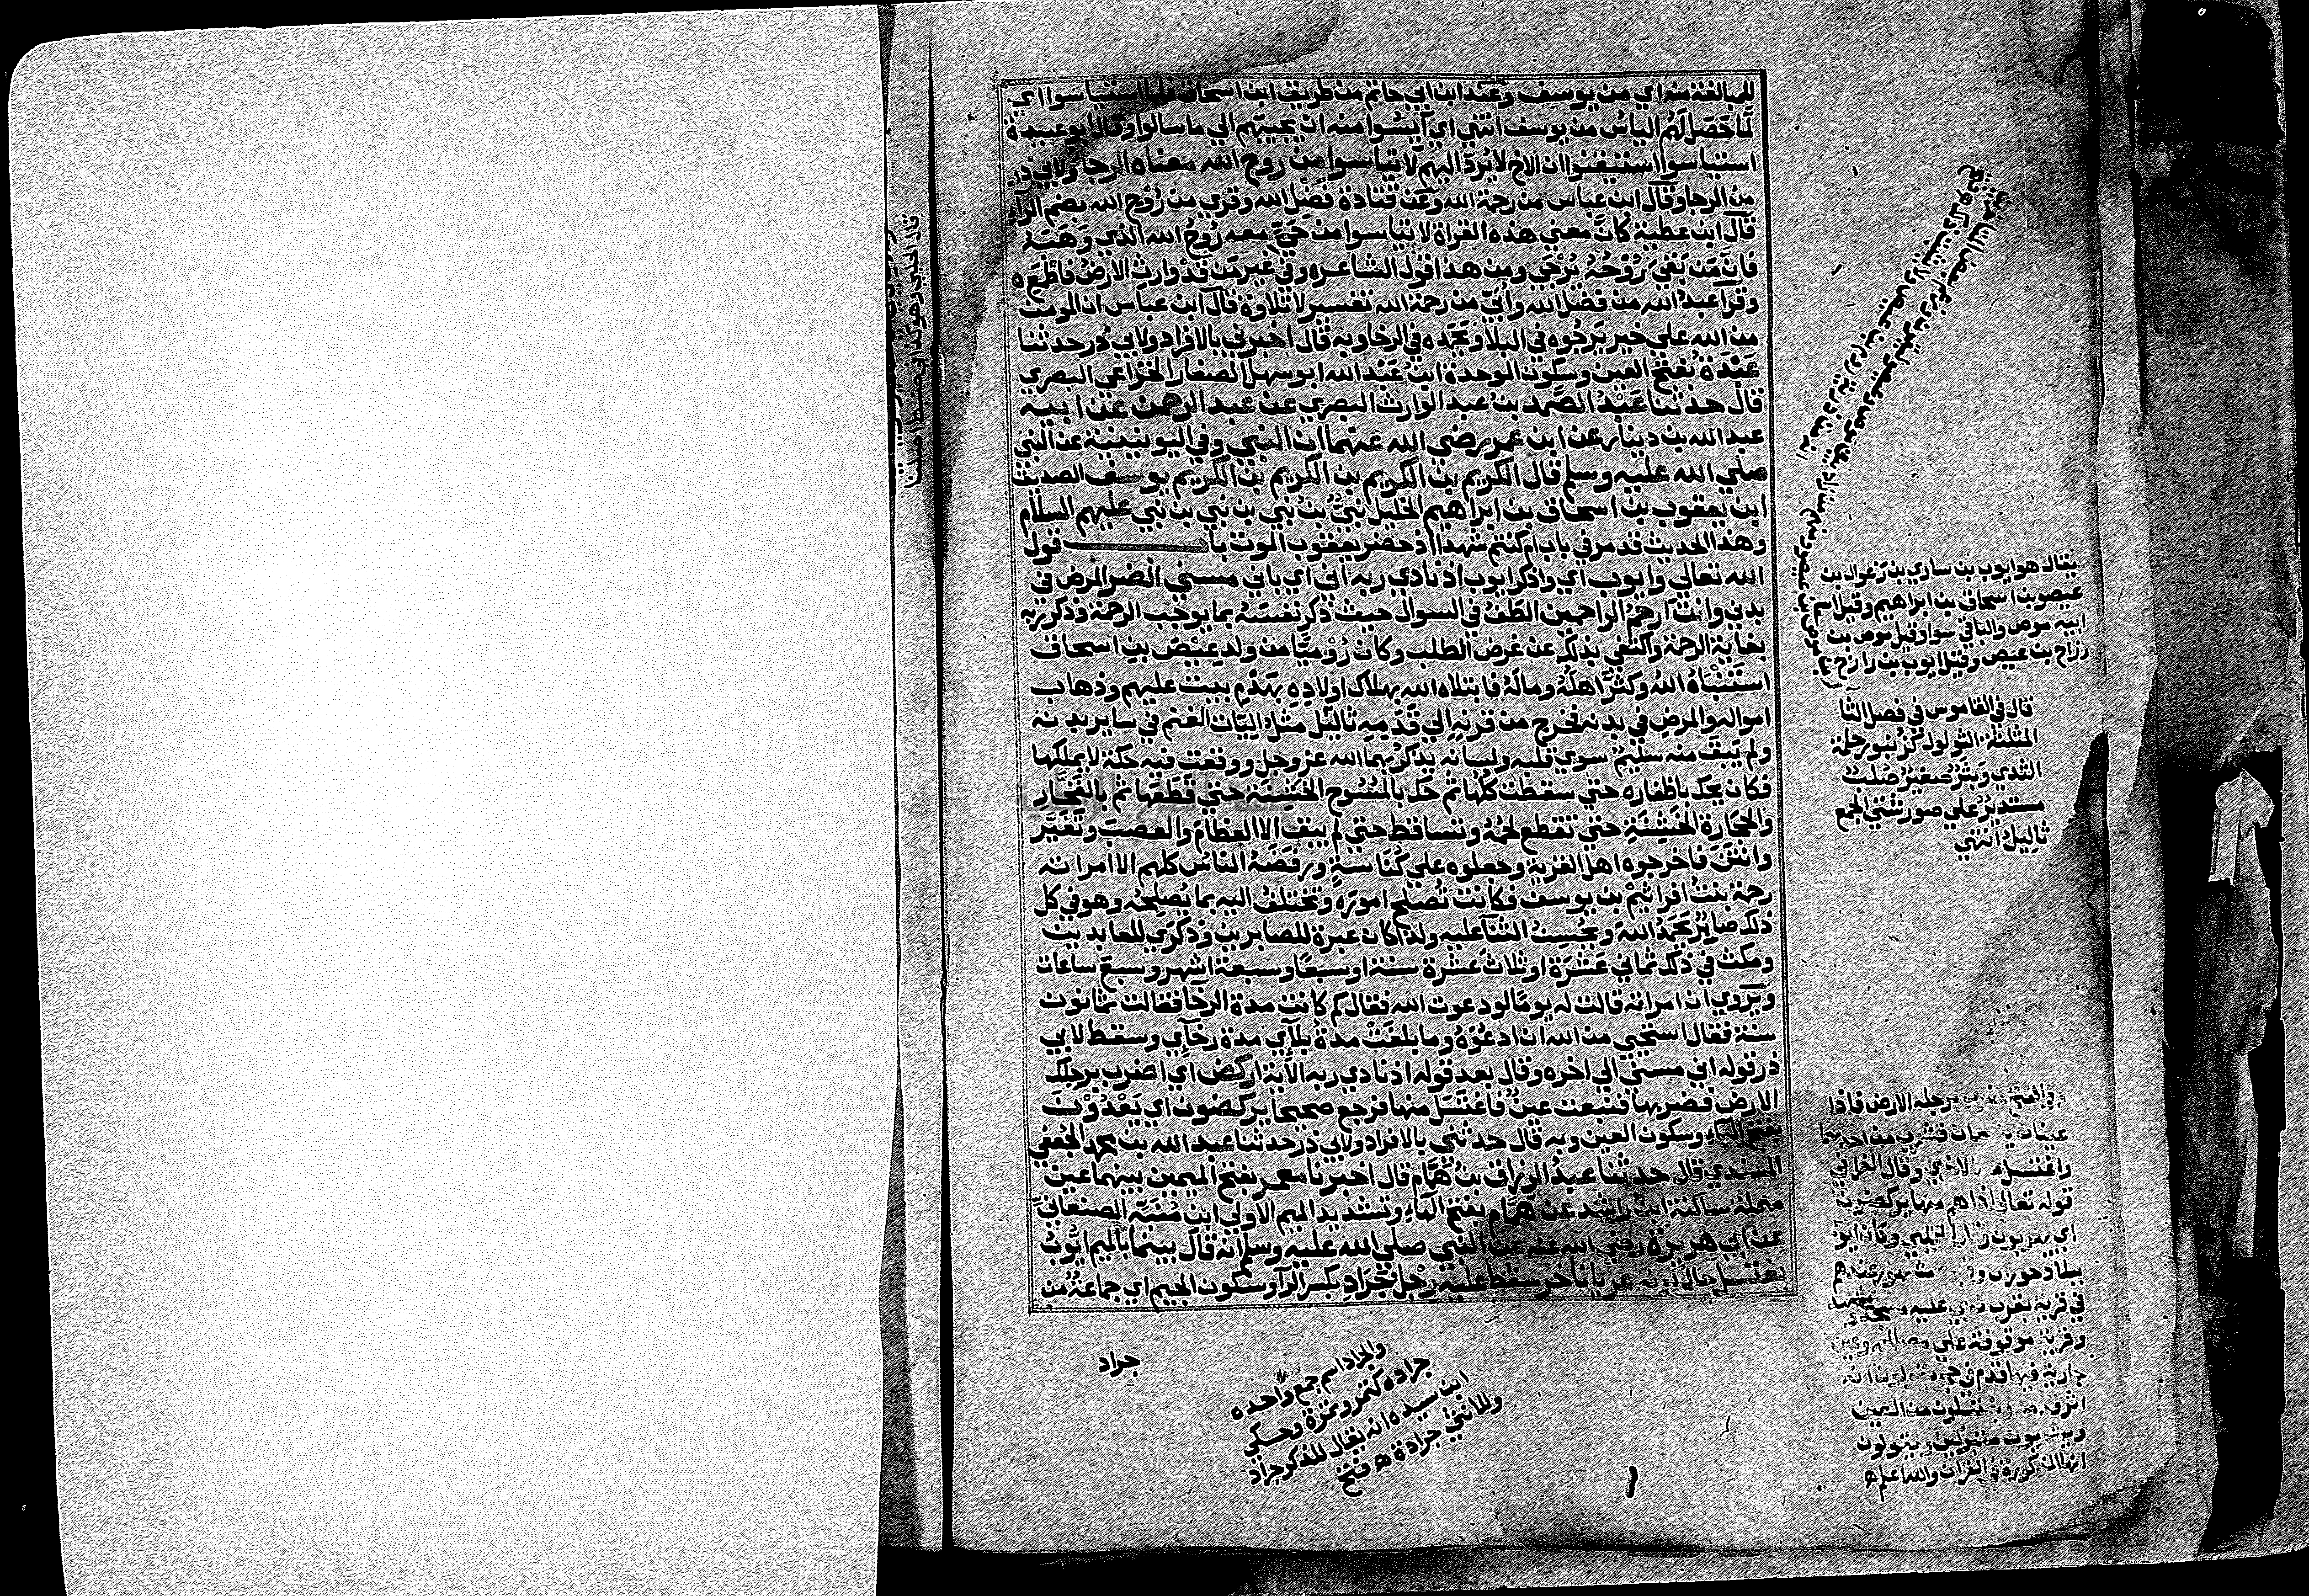 للمبالغة منه اي من يوسف وعند ابن ابي حاتم من طريق ابن اسحاق فلما استياسوا اي
لما حصل لهم الياس من يوسف انتهي اي أيسوا منه ان يجيبهم الي ما سالوا وقال ابو عبيدة
استياسوا استيقنوا ان الاخ لا يُردّ اليهم لا تياسوا من روح الله معناه الرجا ولابي ذر
من الرجا وقال ابن عباس من رحمة الله وعن قتادة فضل الله وقري من رُوح الله بضم الراء
قال ابن عطية كأنّ معني هذه القراة لا تياسوا من حيّ معه رُوحُ الله الذي وَهَبَهُ
فانّ مَن بَقيَ رُوْحُهُ يُرْجَي ومن هذا قول الشاعر ه وفي غير مَن قدْ وارتِ الارضُ فاطْمَع ه
وقرا عبدُ الله من فضل الله وأُبيّ من رحمة الله تفسير لا تلاوة قال ابن عباس ان المومن
من الله علي خير يَرجُوه في البلا ويحَمَده في الرخا وبه قال اخبرني بالافراد ولابي ذر حدثنا
عَبْدَةُ بفتح العين وسكون الموحدة ابنُ عَبْد الله ابو سهل الصفار الخزاعي البصري
قال حدثنا عَبْدُ الصَّمد بنُ عبد الوارث البصري عن عبد الرحمن عن ابيه
عبد الله بن دينار عن ابن عمر رضي الله عنهما ان النبي وفي اليونينية عن النبي
صلي الله عليه وسلم قال الكريم بن الكريم بن الكريم بن الكريم يوسف الصديق
ابن يعقوب بن اسحاق بن ابراهيم الخليل نبيُّ بنُ نبي بن نبي بن نبي عليهم السلام
وهذا الحديث قد مر في باب ام كنتم شهدا اذ حضر يعقوب الموت باب قول
الله تعالي وايوب اي واذكر ايوب اذ نادي ربه اني اي باني مسني الضر المرض في
بدني وانت ارحمُ الراحمين الطَفُ في السوال حيث ذكر نفسَهُ بما يوجب الرحمة وذكر ربه
بغاية الرحمة واكتفي بذلك عن عرض الطلب وكان رُوْميًّا من ولدِ عِيْصَ بنِ اسحاق
استَنْبَاهُ اللهُ وكثَّر اهلَهُ ومالَهُ فابتلاه الله بهلاك اولادِهِ بهَدْم بيت عليهم وذهاب
امواله والمرضِ في بدنه فخرج من قرنِهِ الي قَدَميهِ ثاليْل مثلُ اليّات الغنم في ساير بدنه
ولم يَبقَ منه سليمٌ سوي قلبه ولسانه يذكرُ بهما الله عز وجل ووقعت فيه حكة لا يملكها
فكان يحك باظفاره حتي سقطت كلُّها ثم حك بالمُسُوح الخشِنَةِ حتي قَطَعَها ثم بالفَخَّار
والحِجَارة الخَشِنَةِ حتي تقطع لحمُهُ وتساقط حتي لم يبق الا العظامَ والعصبَ وتغيَّر
وانتَنَ فاخرجوه اهل القرية وجعلوه علي كُنَاسةٍ ورفضَهُ الناسُ كلهم الا امراته
رحمة بنتُ افراثيمْ بن يوسف فكانت تُصلح امورَه وتختلفُ اليه بما يُصلِحُه وهو في كل
ذلك صابرٌ يحَمَدُ اللهَ ويحُسِنُ الثنا عليه ولذا كان عبرة للصابرين وذكرَي للعابدين
ومكث في ذلك ثماني عَشْرَة او ثلاثَ عَشْرة سنة او سبعًا وسبعة اشهر وسبعَ ساعات
ويَروي ان امراته قالت له يومًا لو دعوت الله فقال كم كانت مدة الرخا فقالت ثمانون
سنة فقال استحيي من الله ان ادعُوَهُ وما بلغتْ مدةُ بلاَي مدةَ رخاَي وسقط لابي
ذر قوله اني مسني الي اخره وقال بعد قوله اذ نادي ربه الآية اركض اي اضرب برجلك
الارض فضربها فنبعت عينٌ فاغتسَلَ منها فرجع صحيحا يركضون اي يَعْدُوْنَ
بفتح الياء وسكون العين وبه قال حدثني بالافراد ولابي ذر حدثنا عبد الله بن محمد الجُعفي
المسندي قال حدثنا عبدُ الرزاق بنُ هَمَّام قال اخبرنا معمر بفتح الميمين بينهما عين
مهملة ساكنة ابنُ راشد عن هَمَّام بفتح الهاء وتشديد الميم الاولي ابن مُنَبّه الصنعانيّ
عن ابي هريرة رضي الله عنه عن النبي صلي الله عليه وسلم انه قال بينما بالميم ايّوبُ
يغتسل حال كونه عريانا خر سقط عليه رِجْلُ جَرَادٍ بكسر الرا وسكون الجيم اي جماعةٌ من
جراد
والجراد اسم جمع واحده
جرادة كتمر وتمرة وحكي
ابن سيده انه يقال للذكر جراد
وللانثي جرادة ه فتح
قال الحلبي وهو كذا في
يقال هو ايوب بن ساري بن رَعوال بن
عيصو بن اسحاق بن ابراهيم وقيل اسم
ابيه موص والباقي سوا وقيل موص بن
رزاح بن عيص وقيل ايوب بن رازح
قال في القاموس في فصل الثا
المثلثة الثولول كزُنبور حلمة
الثدي وبَثْرٌ صغيرٌ صُلبٌ
مستديرٌ علي صور شتي الجمع
ثاليل انتهي
برجله الارض فاذا
عينان فشرب من احديهما
واغتسل
قوله تعالي اذا هم منها يركضون
اي يهربون
في قرية بقرب
وقرية موقوفة علي
جارية فيها قدم في
من العين
ويشربون متبركين ويقولون
انها المذكورة في القران والله اعلم ه